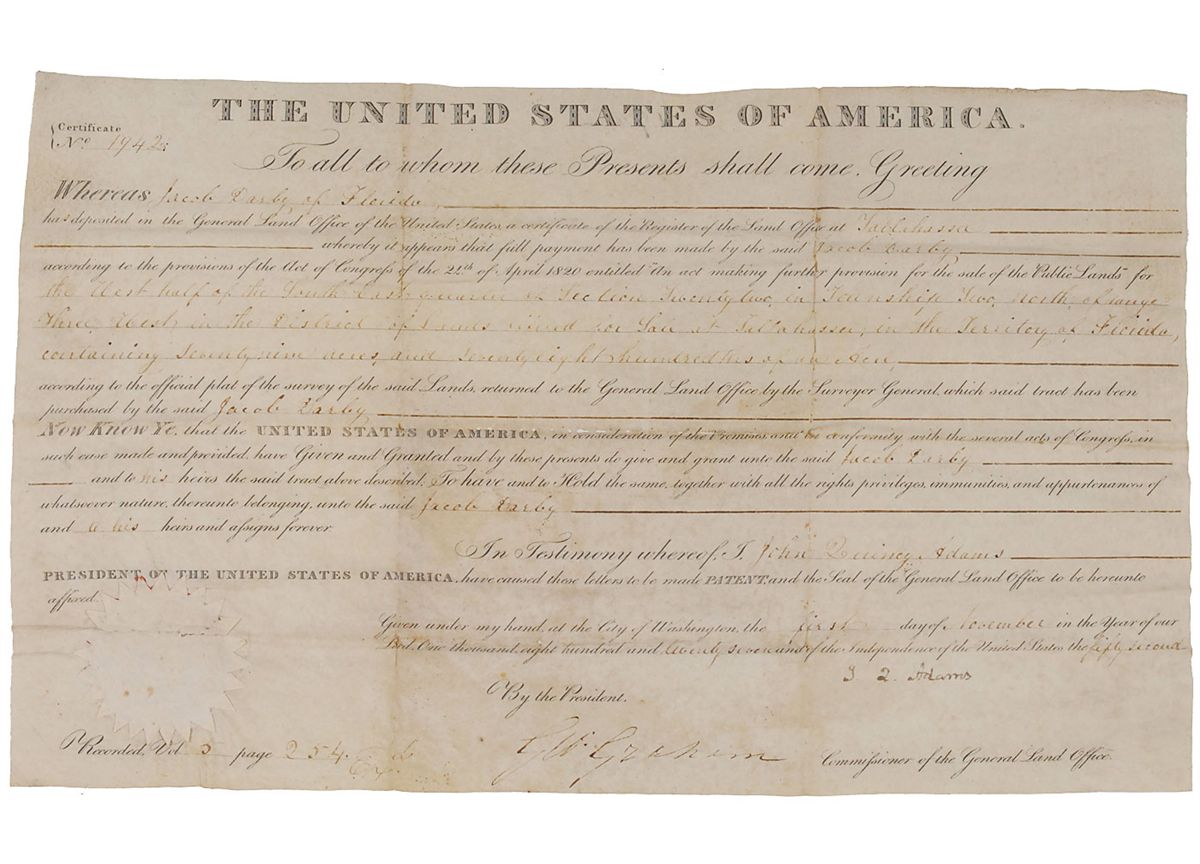 THE UNITED STATES OF AMERICA.
Certificate
No. 1942
To all to whom these Presents shall come, Greeting
Whereas Jacob Darby of Florida,
has deposited in the General Land Office of the United States, a certificate of the Register of the Land Office at Tallahassa
whereby it appears that full payment has been made by the said Jacob Darby
according to the provisions of the Act of Congress of the 24th of April 1820 entitled "An act making further provision for the sale of the Public Lands" for
the West half of the South East quarter of Section Twenty two, in Township Two, North, of range
Three, West, in the District of Lands offered for Sale at Tallahassa, in the Territory of Florida,
containing Seventy nine acres, and Seventy eight hundredths of an Acre,
according to the official plat of the survey of the said Lands, returned to the General Land Office by the Surveyor General, which said tract has been
purchased by the said Jacob Darby
Now Know Ye, that the UNITED STATES OF AMERICA, in consideration of the Premises, and in conformity with the several acts of Congress, in
such case made and provided, have Given and Granted and by these presents do give and grant unto the said Jacob Darby
and to his heirs the said tract above described: To have and to Hold the same, together with all the rights, privileges, immunities, and appurtenances of
whatsoever nature, thereunto belonging, unto the said Jacob Darby
and to his heirs and assigns forever.
In Testimony whereof, I, John Quincy Adams
PRESIDENT OF THE UNITED STATES OF AMERICA, have caused these letters to be made PATENT and the Seal of the General Land Office to be hereunto
affixed.
Given under my hand, at the City of Washington, the first day of November in the Year of our
Lord, One thousand, eight hundred and twenty seven and of the Independence of the United States the fifty second
J. Q. Adams
By the President.
Recorded, Vol 3 page 254.
G W Graham
Commissioner of the General Land Office.